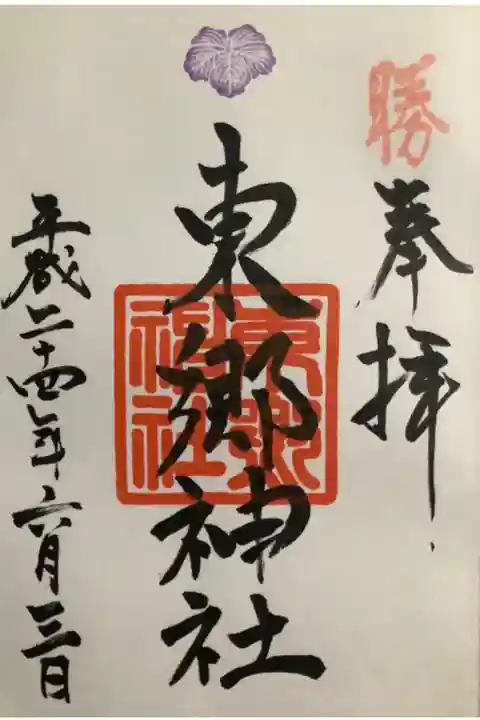 勝
奉拝
東郷神社
東郷神社
平成二十四年六月三日